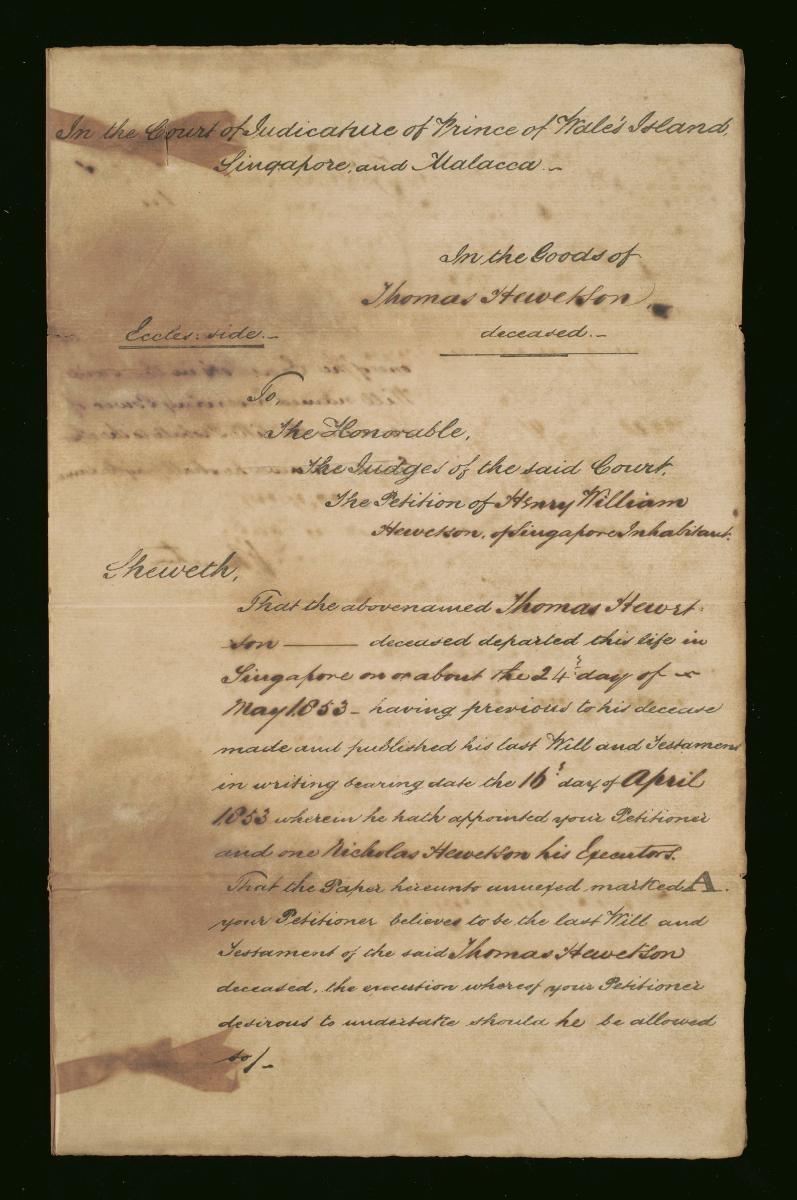 In the Court of Judicature of Prince of Wale's Island,
Singapore, and Malacca.-
In the Goods of
Thomas Hewetson,
Eccles: side.-
deceased.-
To,
The Honorable,
The Judges of the said Court.
The Petition of Henry William
Hewetson, of Singapore Inhabitant.
Sheweth,
That the abovenamed Thomas Hewet-
son —— deceased departed this life in
Singapore on or about the 24th day of -
May 1853 - having previous to his decease
made and published his last Will and Testament
in writing bearing date the 16th day of April
1853 wherein he hath appointed your Petitioner
and one Nicholas Hewetson his Executors.
That the Paper hereunto annexed marked A.
your Petitioner believes to be the last Will and
Testament of the said Thomas Hewetson
deceased, the execution whereof your Petitioner
desirous to undertake should he be allowed
so/-